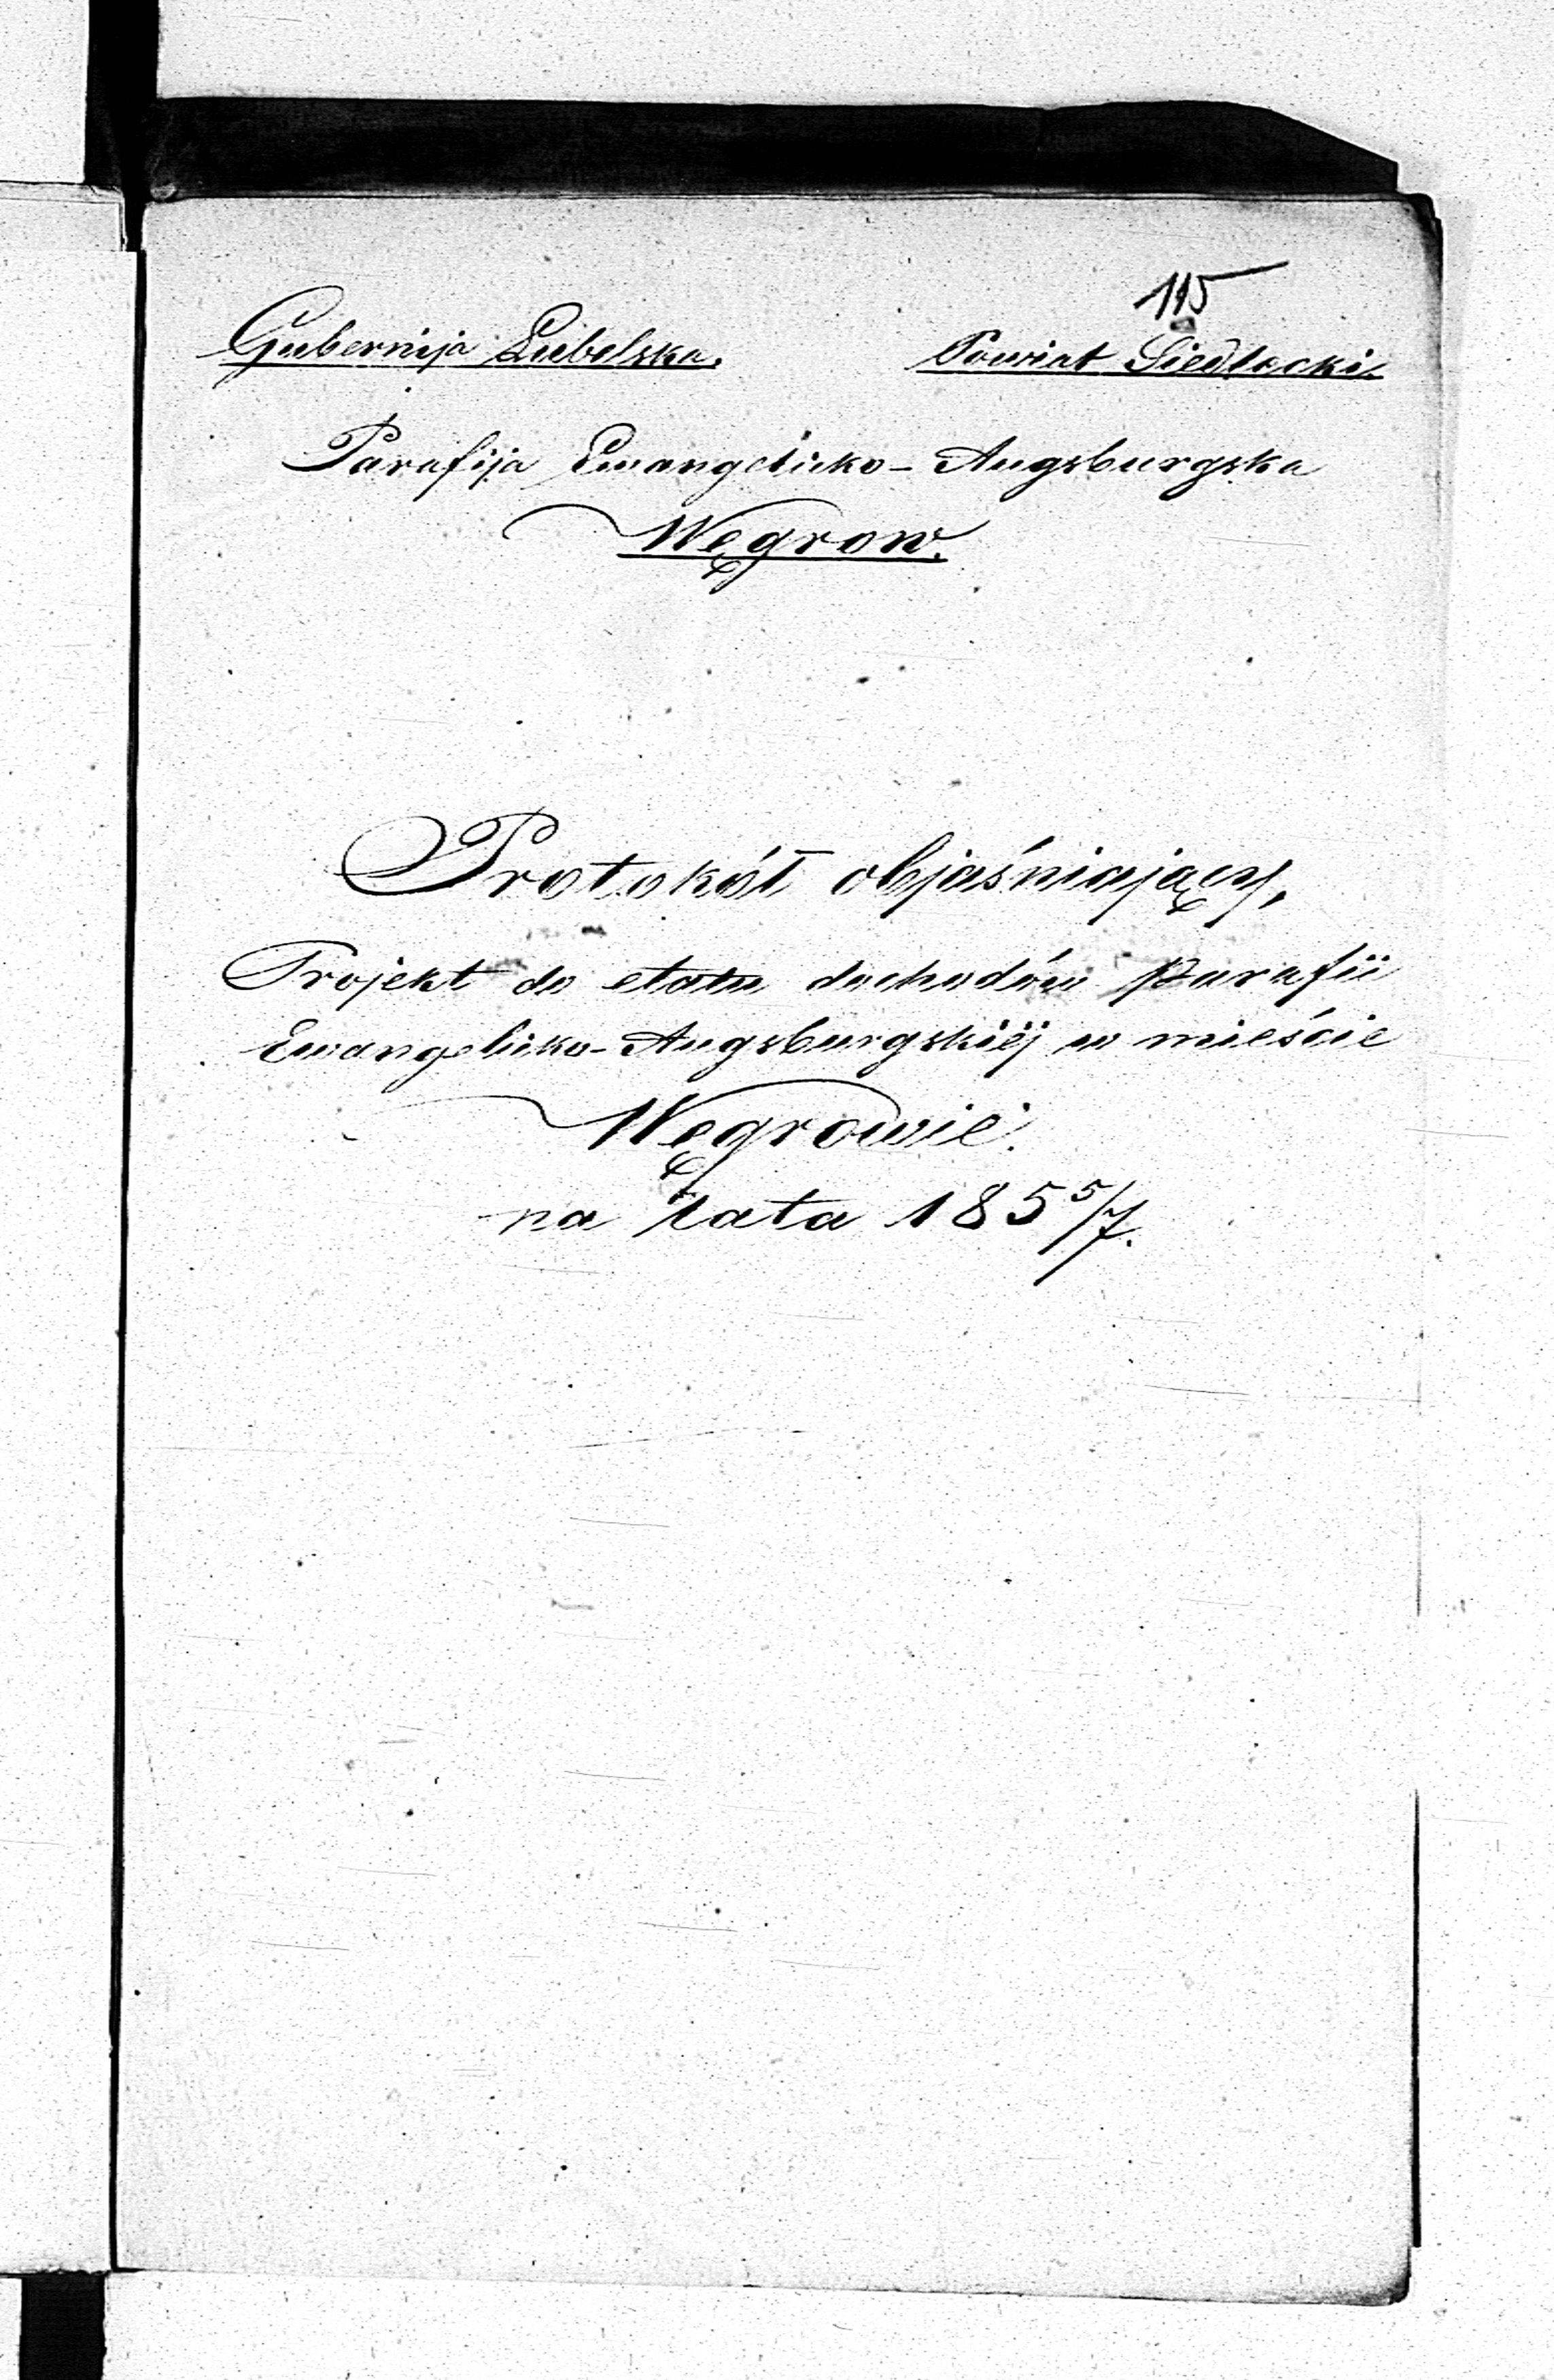 115
Gubernija Lubelska. Powiat Siedlecki.
Parafija Ewangelicko-Augsburgska
Węgrow.
Protokół objaśniający,
Projekt do etatu dochodów Parafii
Ewangelicko-Augsburgskiéj w mieście
Węgrowie.
na lata 185 5/7.